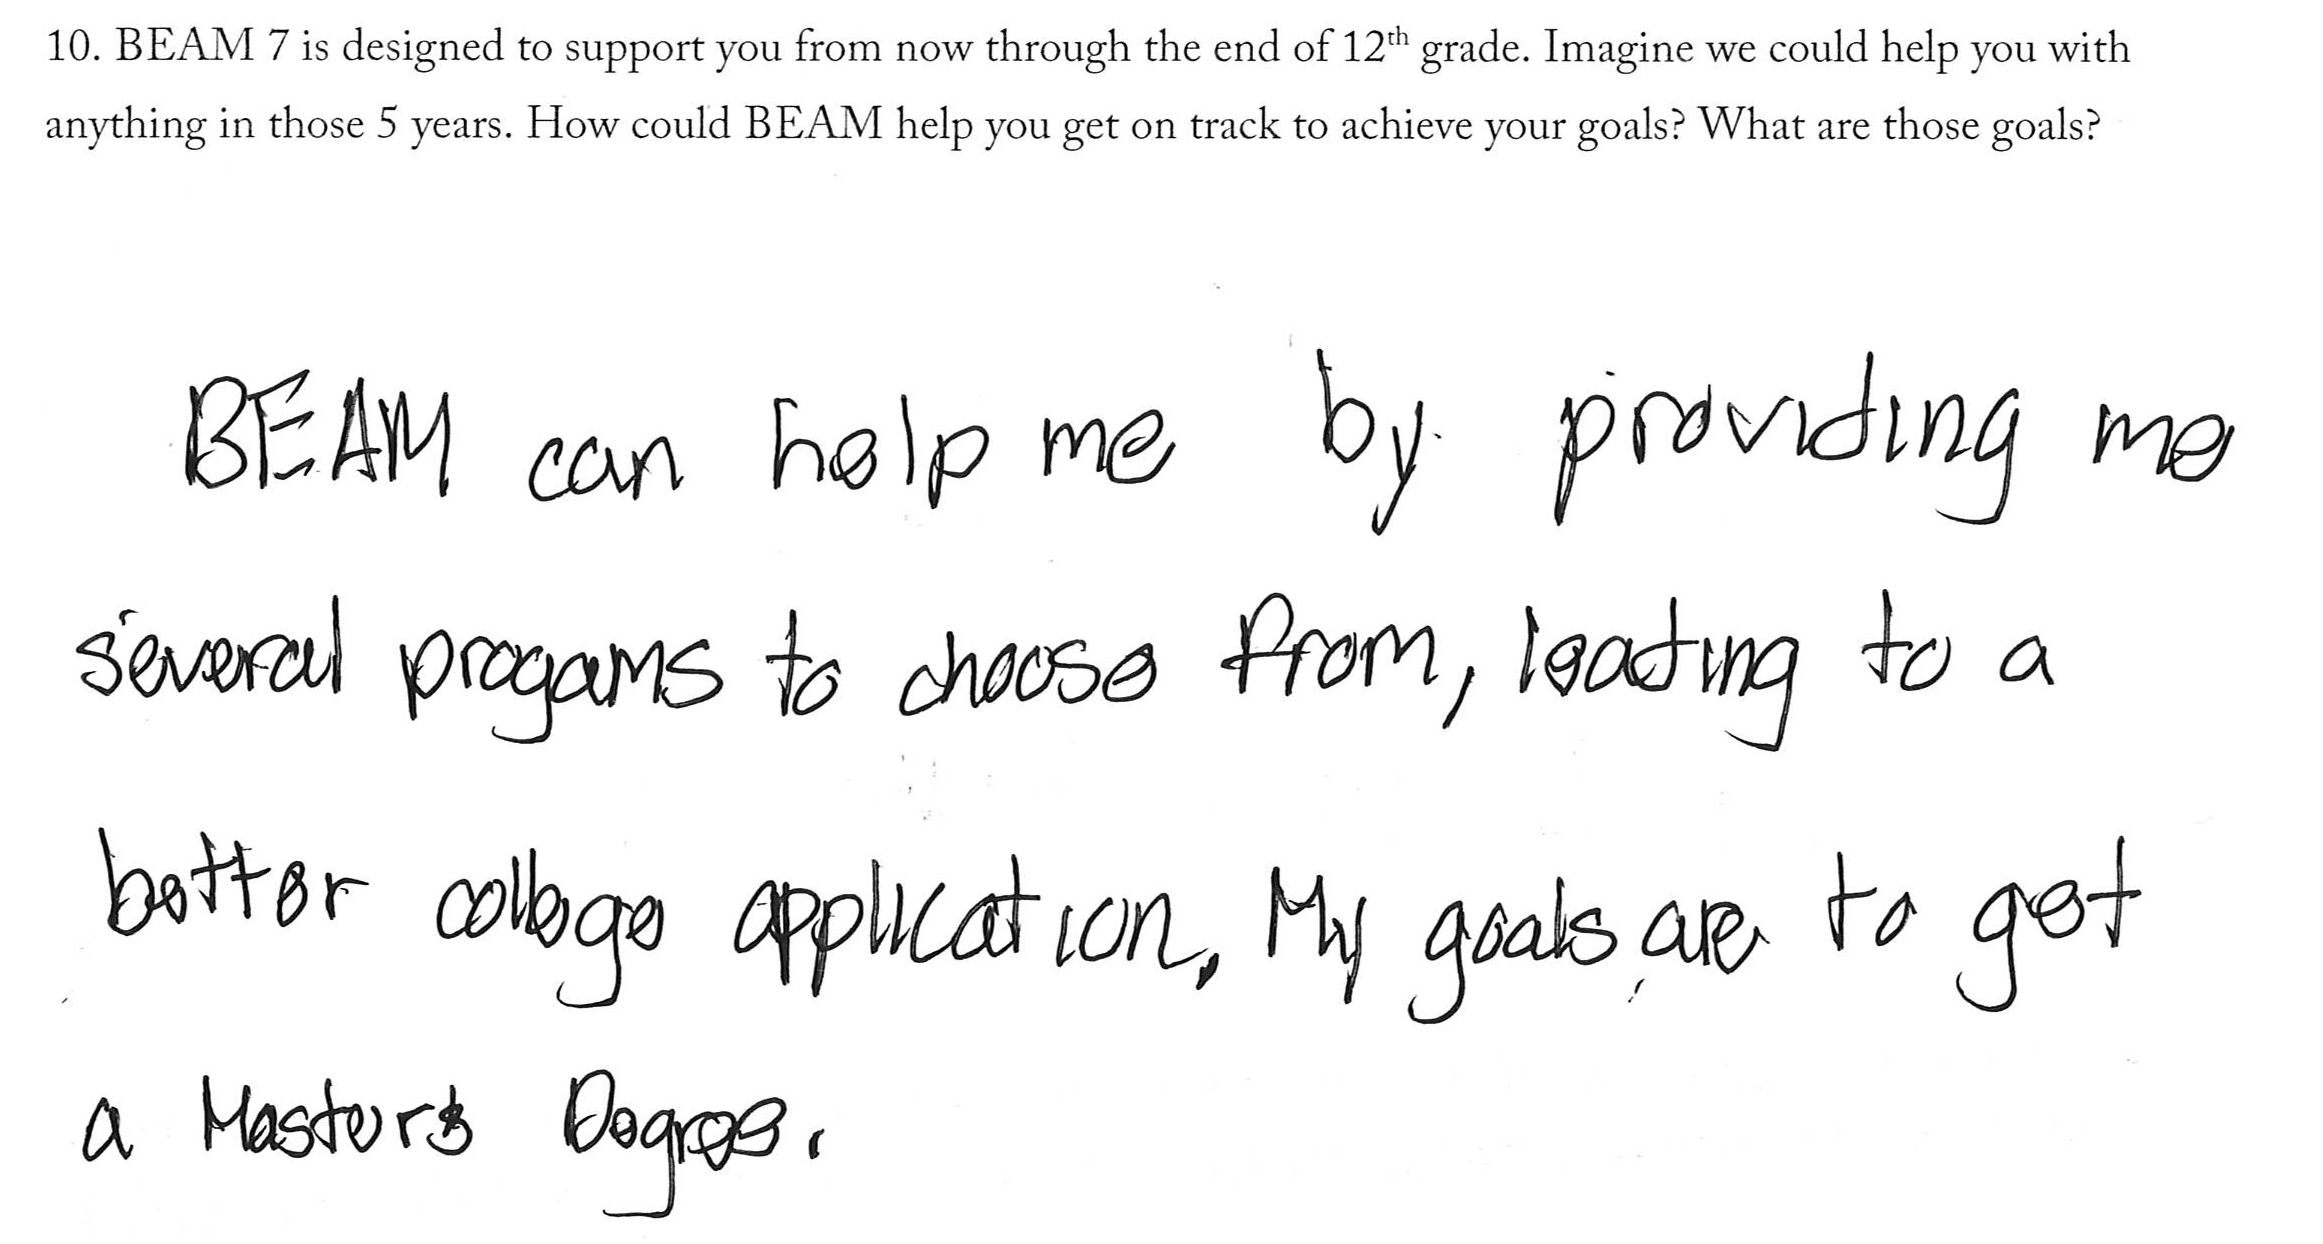 10. BEAM 7 is designed to support you from now through the end of 12th grade. Imagine we could help you with
anything in those 5 years. How could BEAM help you get on track to achieve your goals? What are those goals?
BEAM can help me by providing me
several progams to choose from, leading to a
better college application, My goals are to get
a Masters Degree.